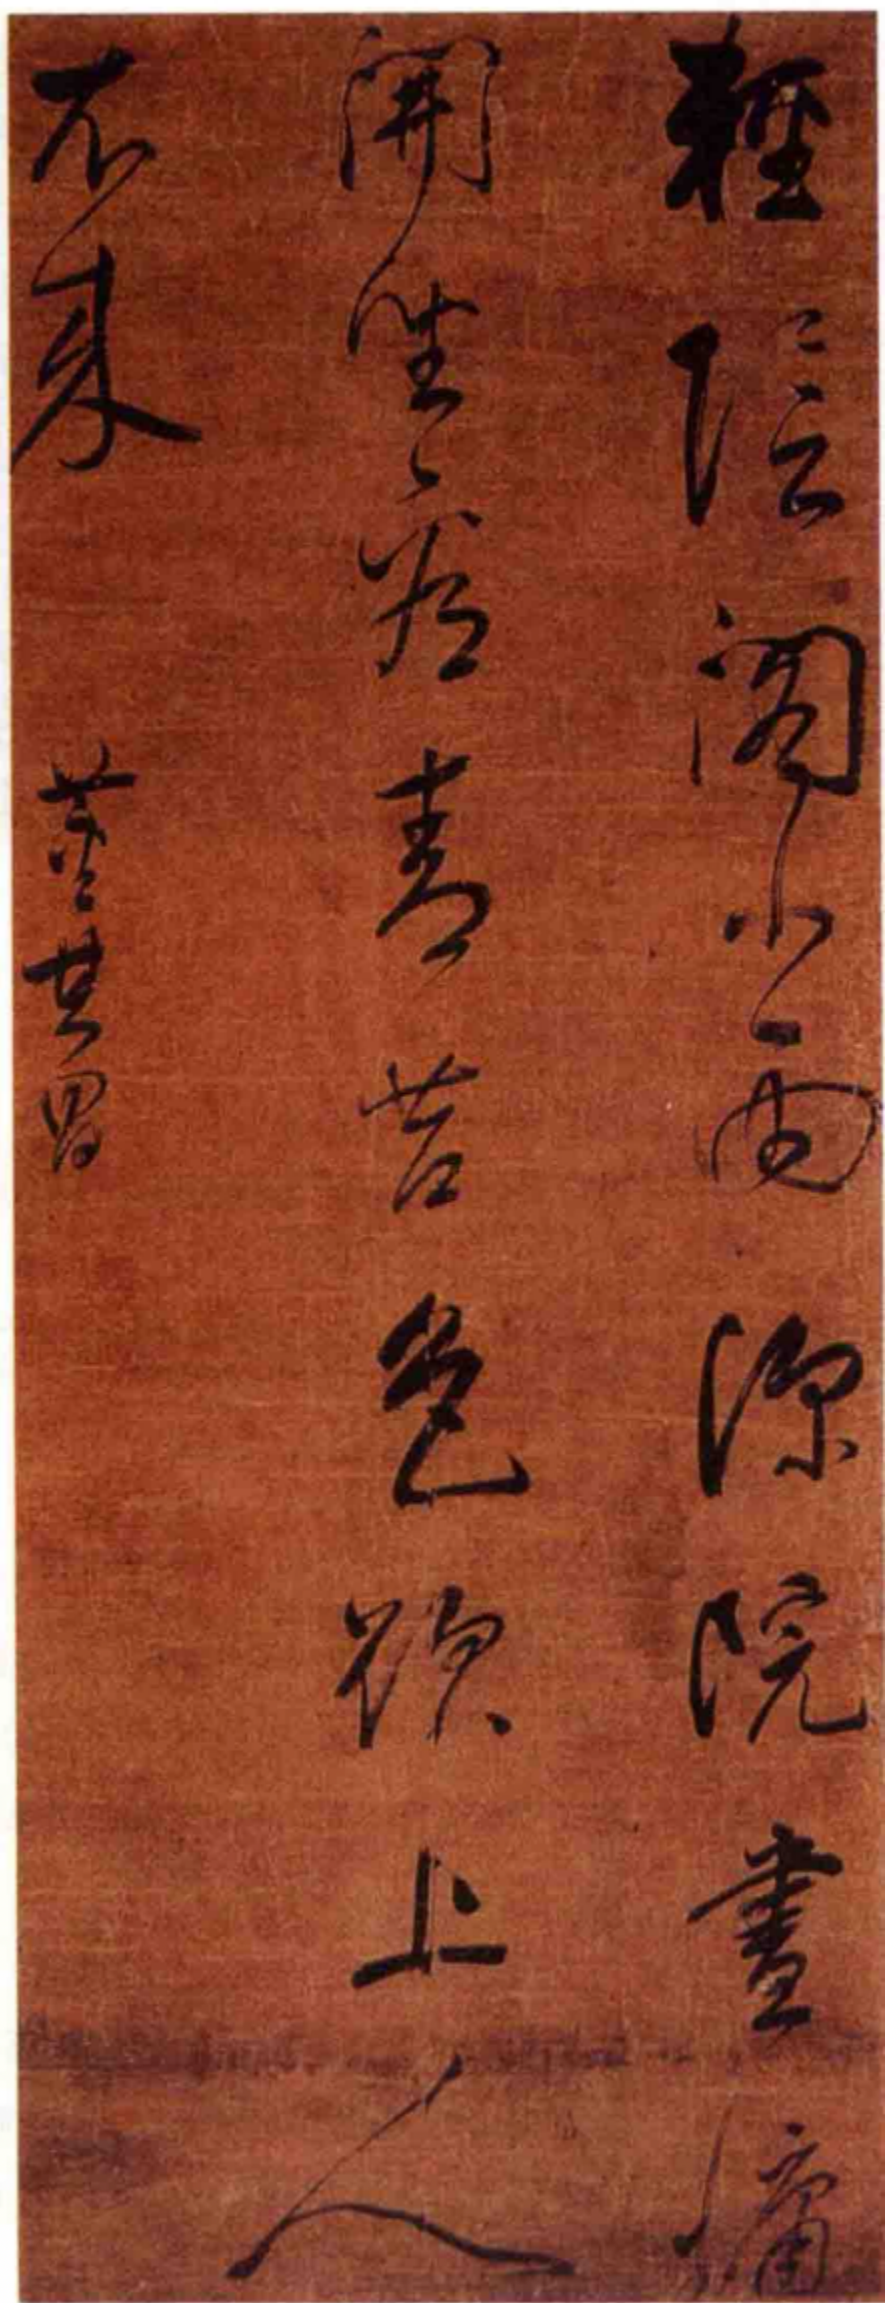 輕陰閣小雨深院晝慵
開坐看青苔色欲上人
衣來 董其昌